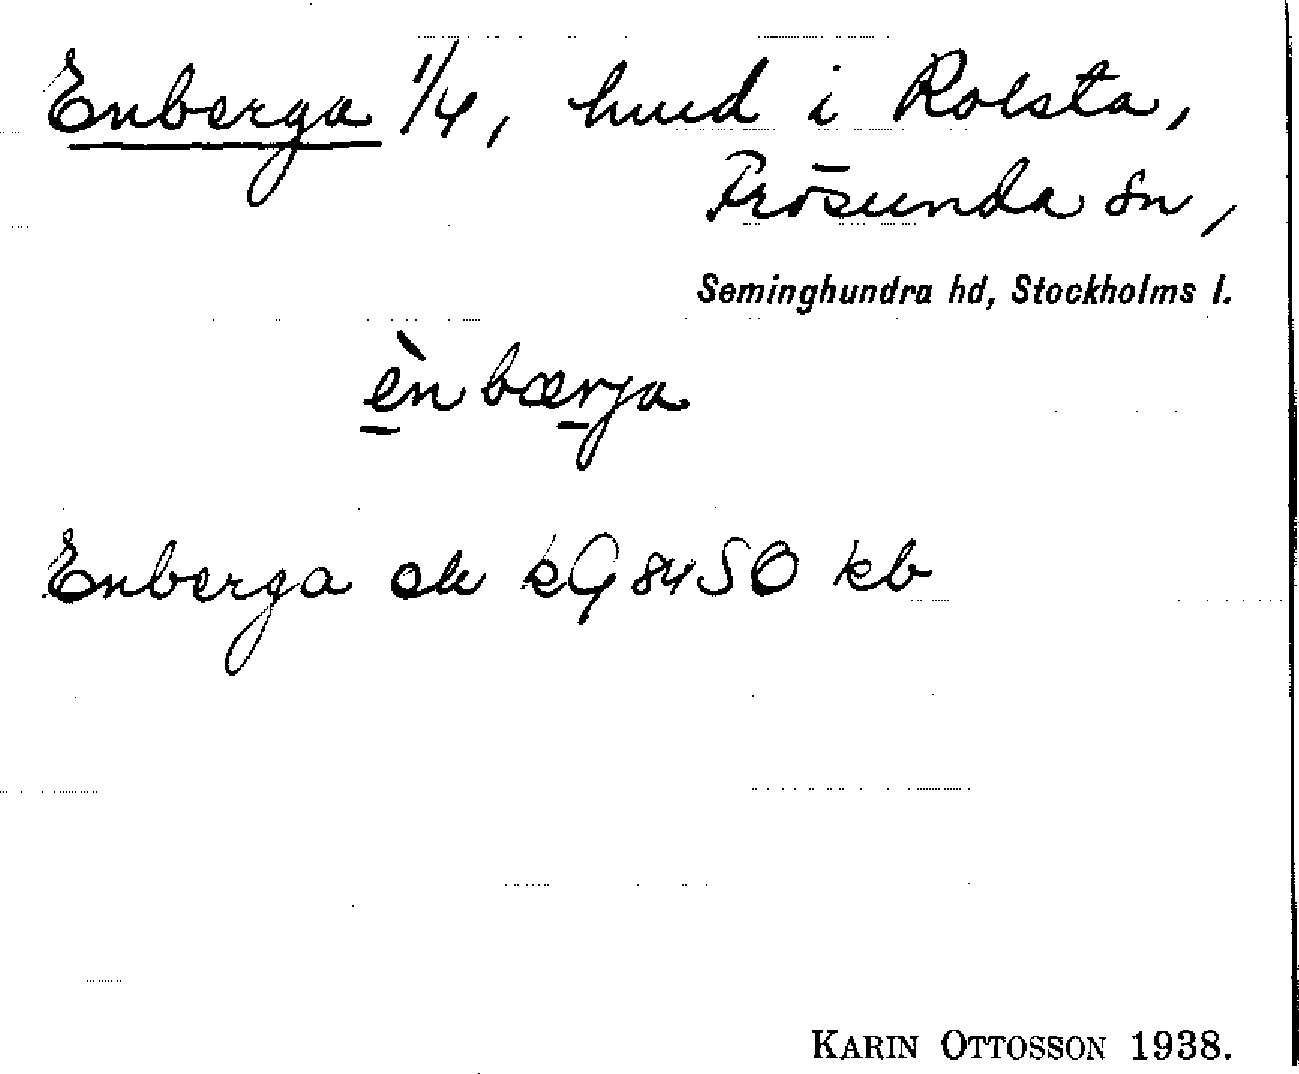 Enberga 1/4, hmd i Rolsta,
Frösunda sn,
Seminghundra hd, Stockholms l.
ènbærja
Enberga ek kG 84 SO kb
KARIN OTTOSSON 1938.